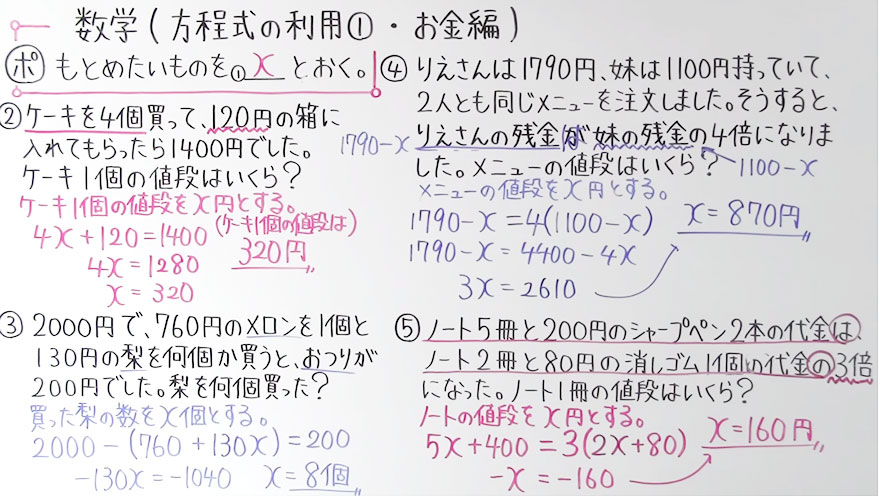 数学(方程式の利用①・お金編)
ポ もとめたいものを①xとおく。
②ケーキを4個買って、120円の箱に
入れてもらったら1400円でした。
ケーキ1個の値段はいくら?
ケーキ1個の値段をx円とする。
4x+120=1400 (ケーキ1個の値段は)
4x=1280 320円
x=320
③2000円で、760円のメロンを1個と
130円の梨を何個か買うと、おつりが
200円でした。梨を何個買った?
買った梨の数をx個とする。
2000-(760+130x)=200
-130x=-1040 x=8個
④りえさんは1790円、妹は1100円持っていて、
2人とも同じメニューを注文しました。そうすると、
1790-x りえさんの残金が妹の残金の4倍になりま
した。メニューの値段はいくら? 1100-x
メニューの値段をx円とする。
1790-x=4(1100-x) x=870円
1790-x=4400-4x
3x=2610
⑤ノート5冊と200円のシャープペン2本の代金は、
ノート2冊と80円の消しゴム1個の代金の3倍
になった。ノート1冊の値段はいくら?
ノートの値段をx円とする。
5x+400=3(2x+80) x=160円
-x=-160